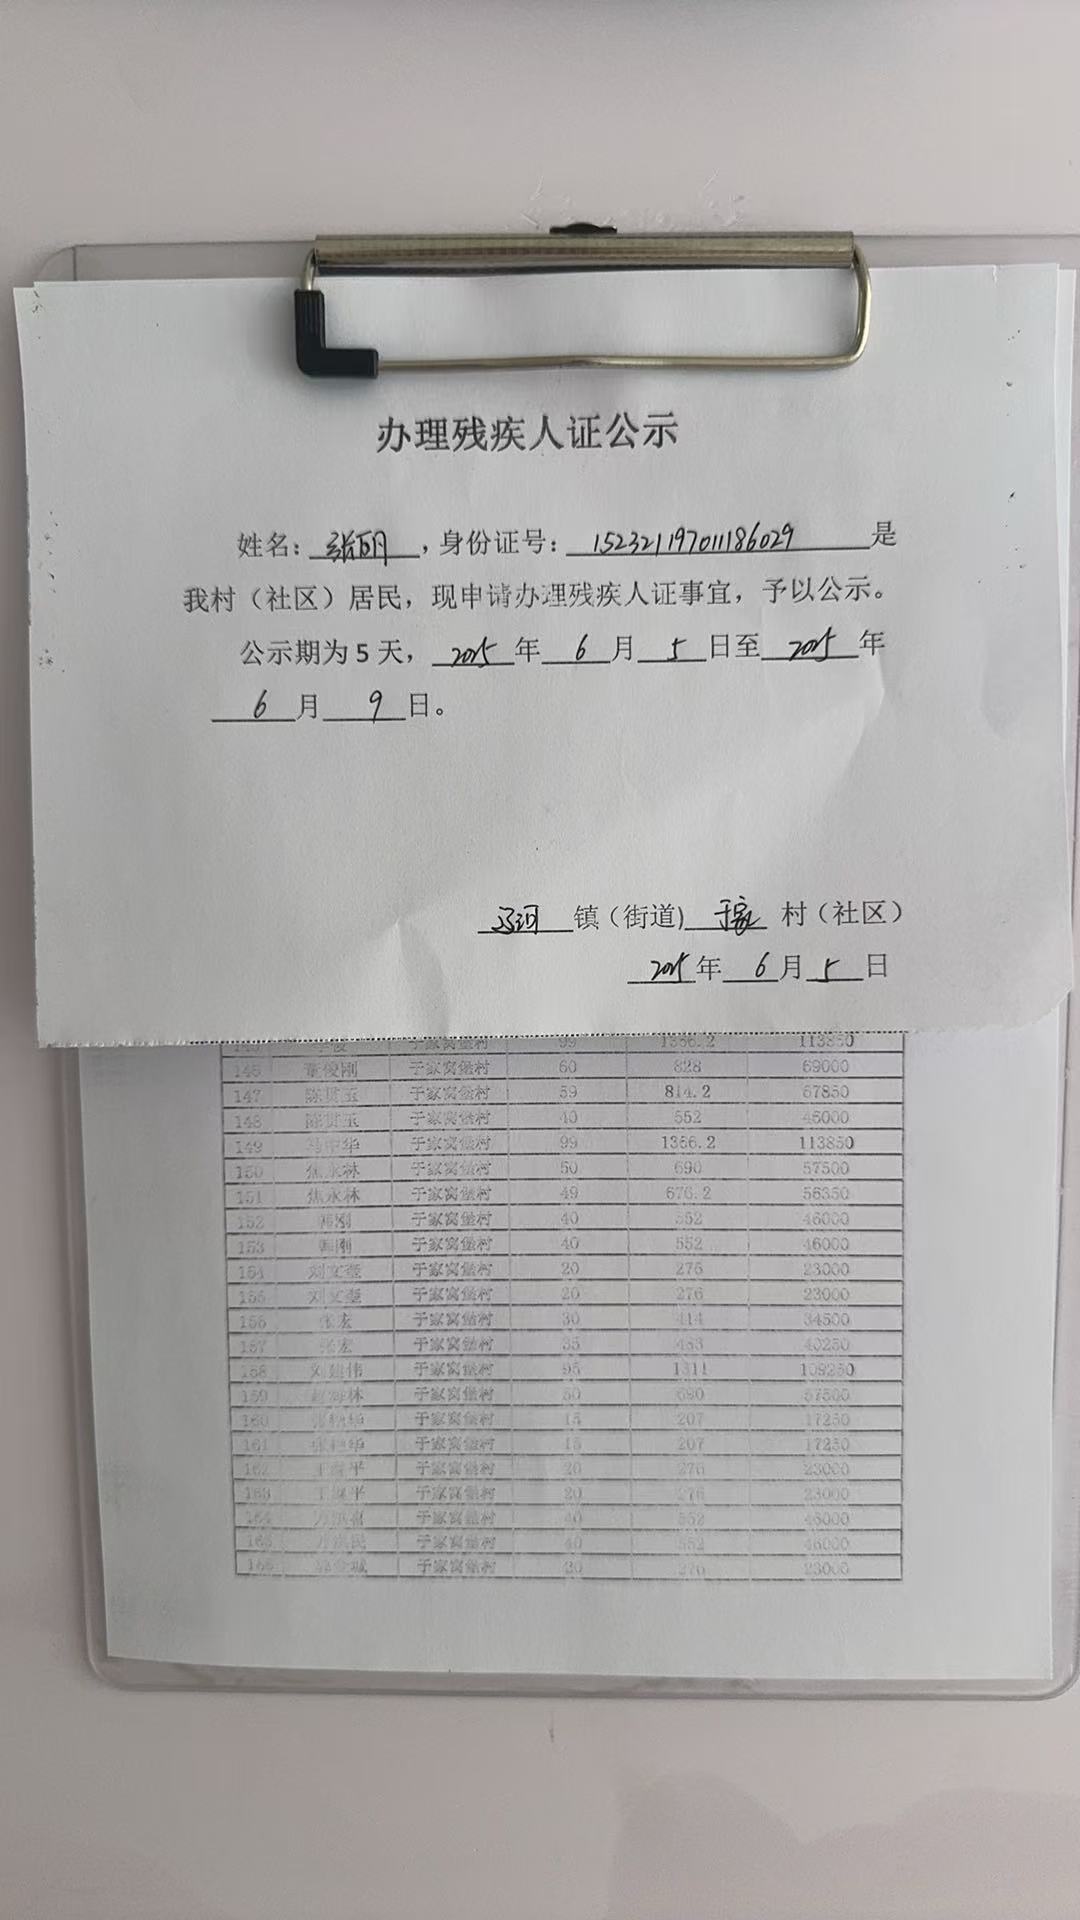 办理残疾人证公示
姓名：张丽，身份证号：152321197011186029是
我村（社区）居民，现申请办理残疾人证事宜，予以公示。
公示期为5天，2025年6月5日至2025年
6月9日。
辽河镇（街道)于家村（社区）
2025年6月5日
于家窝堡村 99 1366.2 113850
146 董俊刚 于家窝堡村 60 828 69000
147 陈贯玉 于家窝堡村 59 814.2 67850
148 陈贯玉 于家窝堡村 40 552 46000
149 华 于家窝堡村 99 1366.2 113850
150 焦永林 于家窝堡村 50 690 57500
151 焦永林 于家窝堡村 49 676.2 56350
152 韩刚 于家窝堡村 40 552 46000
153 韩刚 于家窝堡村 40 552 46000
154 刘文奎 于家窝堡村 20 276 23000
155 刘文奎 于家窝堡村 20 276 23000
156 张宏 于家窝堡村 30 414 34500
157 张宏 于家窝堡村 35 483 40250
158 于家窝堡村 95 1311 109250
159 于家窝堡村 50 690 57500
160 于家窝堡村 15 207 17250
161 于家窝堡村 15 207 17250
162 于家窝堡村 20 276 23000
163 于家窝堡村 20 276 23000
164 于家窝堡村 40 552 46000
165 于家窝堡村 40 552 46000
166 于家窝堡村 20 276 23000